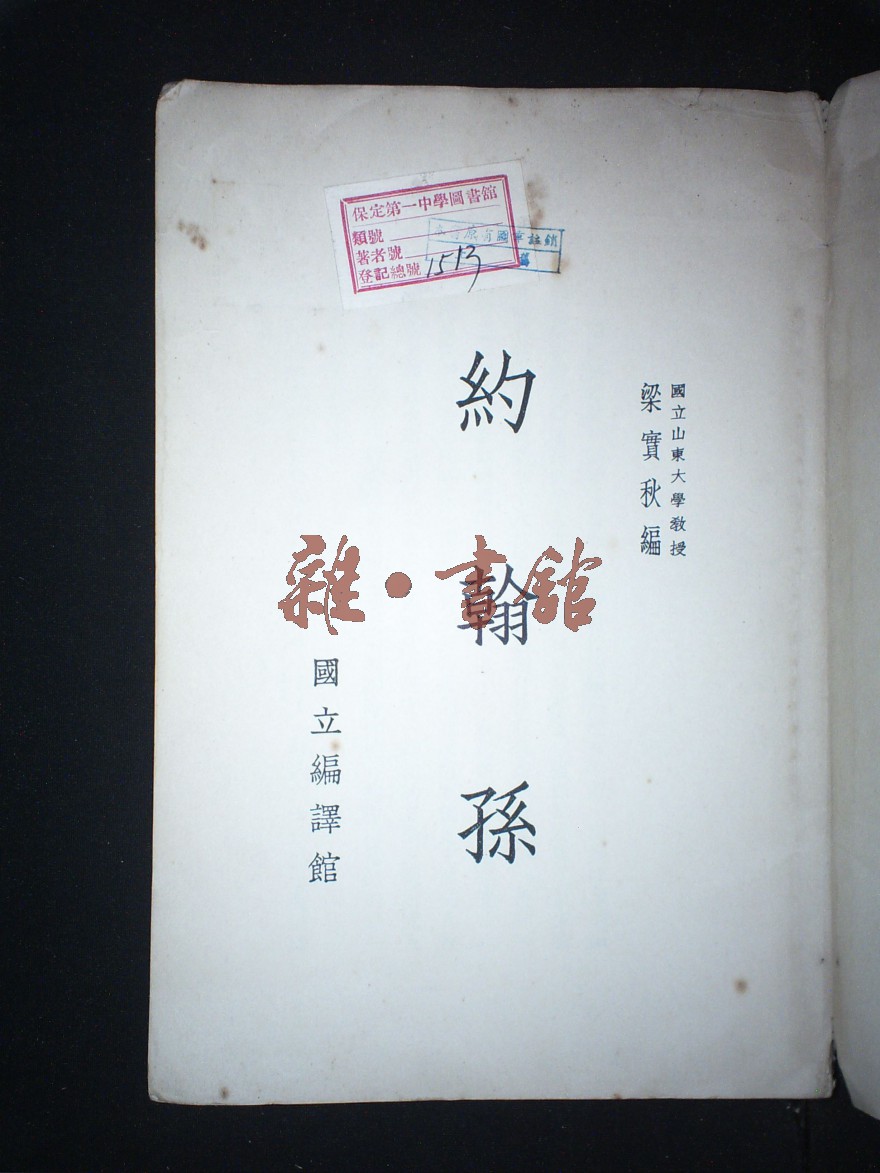 保定第一中學圖書館
類號
著者號
登記總號 1513
國立山東大學教授
梁實秋編
約翰孫
雜·書館
國立編譯館